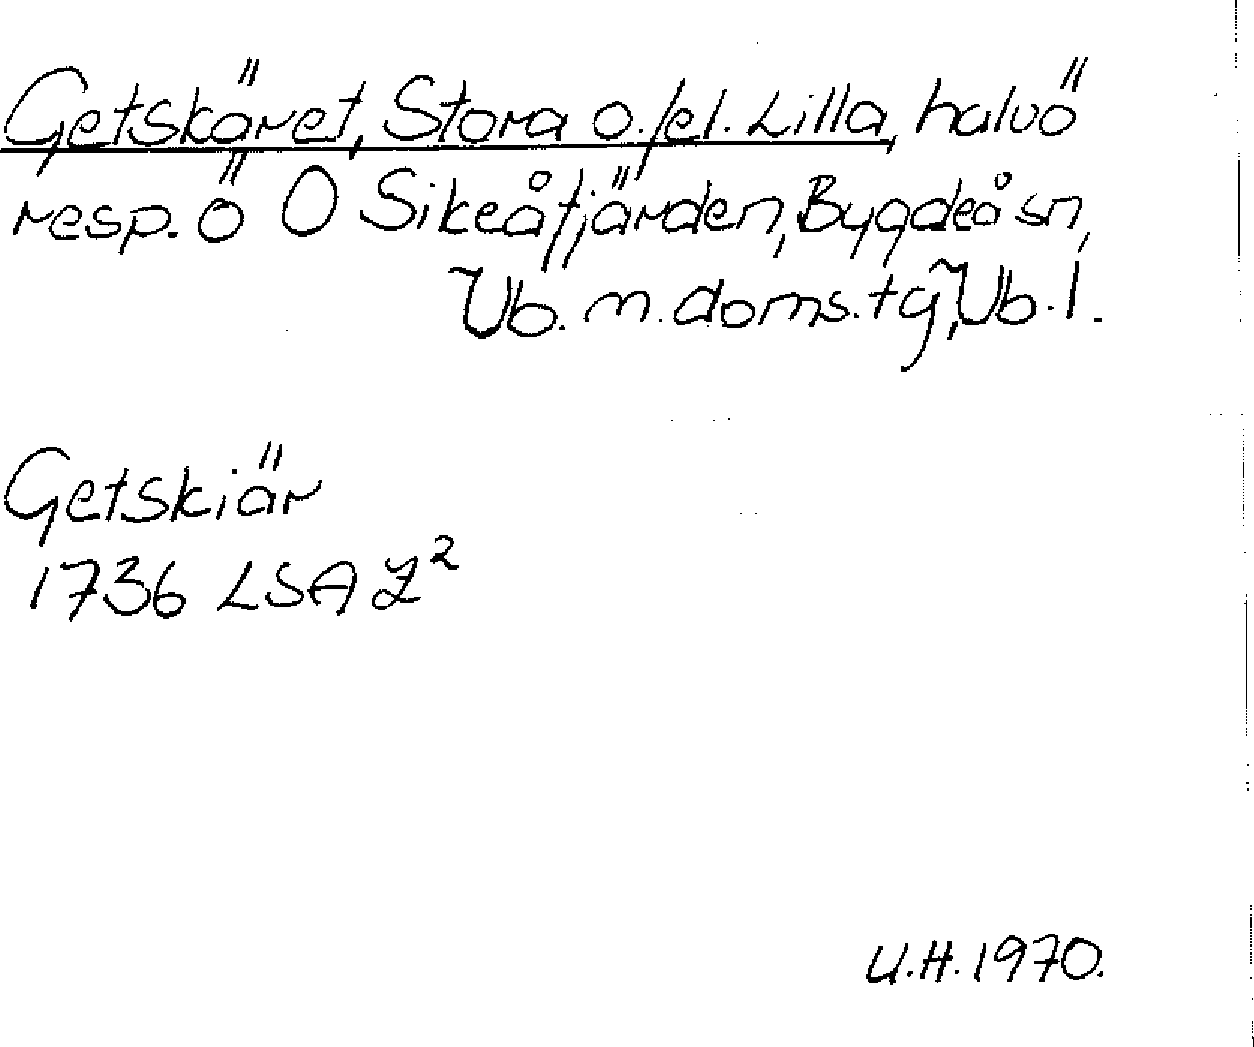 Getskäret, Stora o./el. Lilla, halvö
resp. ö O Sikeåfjärden, Bygdeå sn,
Vb. n. doms. tg, Vb. l.
Getskiär
1736 LSA Z²
U.H. 1970.